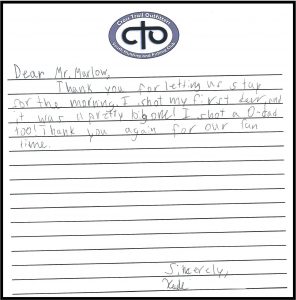 Cross Trail Outfitters
CTO
Dear Mr. Marlow,
Thank you for letting us stay
for the morning. I shot my first deer and
it was a pretty big one! I shot a 
too! Thank you again for our fun
time.
Sincerely,